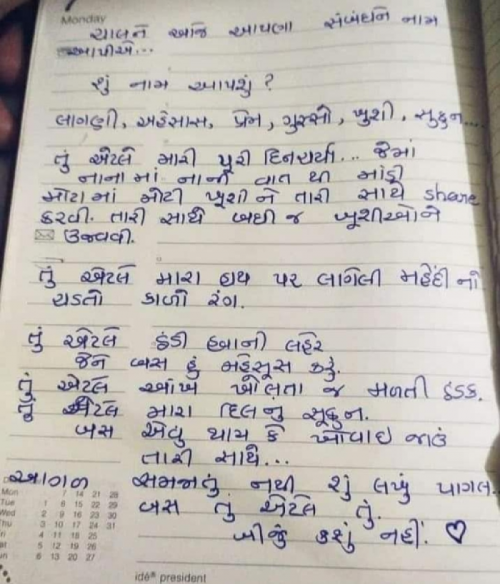 Monday
ચાલને આજે આપણા સંબંધને નામ
આપીએ...
શું નામ આપશું ?
લાગણી, અહેસાસ, પ્રેમ, ગુસ્સો, ખુશી, સુકુન...
તું એટલે મારી પૂરી દિનચર્યા... જેમાં
નાનામાં નાની વાત થી માંડી
મોટામાં મોટી ખુશીને તારી સાથે share
કરવી. તારી સાથે બધી જ ખૂશીઓને
ઉજવવી.
તું એટલે મારા હાથ પર લાગેલી મહેંદી નો
ચડતો કાળો રંગ.
તું એટલે ઠંડી હવાની લહેર
જેને બસ હું મહેસૂસ કરું.
તું એટલે આંખ ખોલતા જ મળતી ઠંડક.
તું એટલે મારા દિલનુ સૂકુન.
બસ એવુ થાય કે ખોવાઇ જાઉં
તારી સાથે...
આગળ સમજાતું નથી શું લખું પાગલ
બસ તુ એટલે તું.
બીજું કશું નહીં. ♡
Mon 7 14 21 28
Tue 1 8 15 22 29
Wed 2 9 16 23 30
Thu 3 10 17 24 31
Fri 4 11 18 25
Sat 5 12 19 26
Sun 6 13 20 27
idé® president